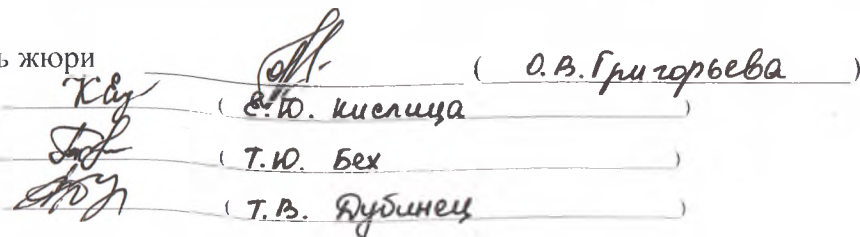 ь жюри ( О.В. Григорьева )
( Е.Ю. Кислица )
( Т.Ю. Бех )
( Т.В. Дубинец )